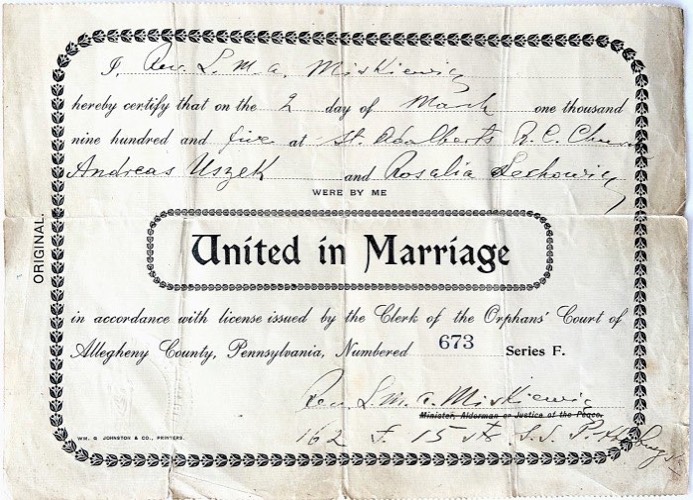 I, Rev. L. M. A. Miskiewicz
hereby certify that on the 2 day of March one thousand
nine hundred and five at St. Adalberts R. C. Church
Andreas Uszek and Rosalia Lechowicz
WERE BY ME
ORIGINAL.
United in Marriage
in accordance with license issued by the Clerk of the Orphans' Court of
Allegheny County, Pennsylvania, Numbered 673 Series F.
Rev. L. M. A. Miskiewicz
Minister, Alderman or Justice of the Peace.
WM. G. JOHNSTON & CO., PRINTERS.
162 S. 15 St. S.S.